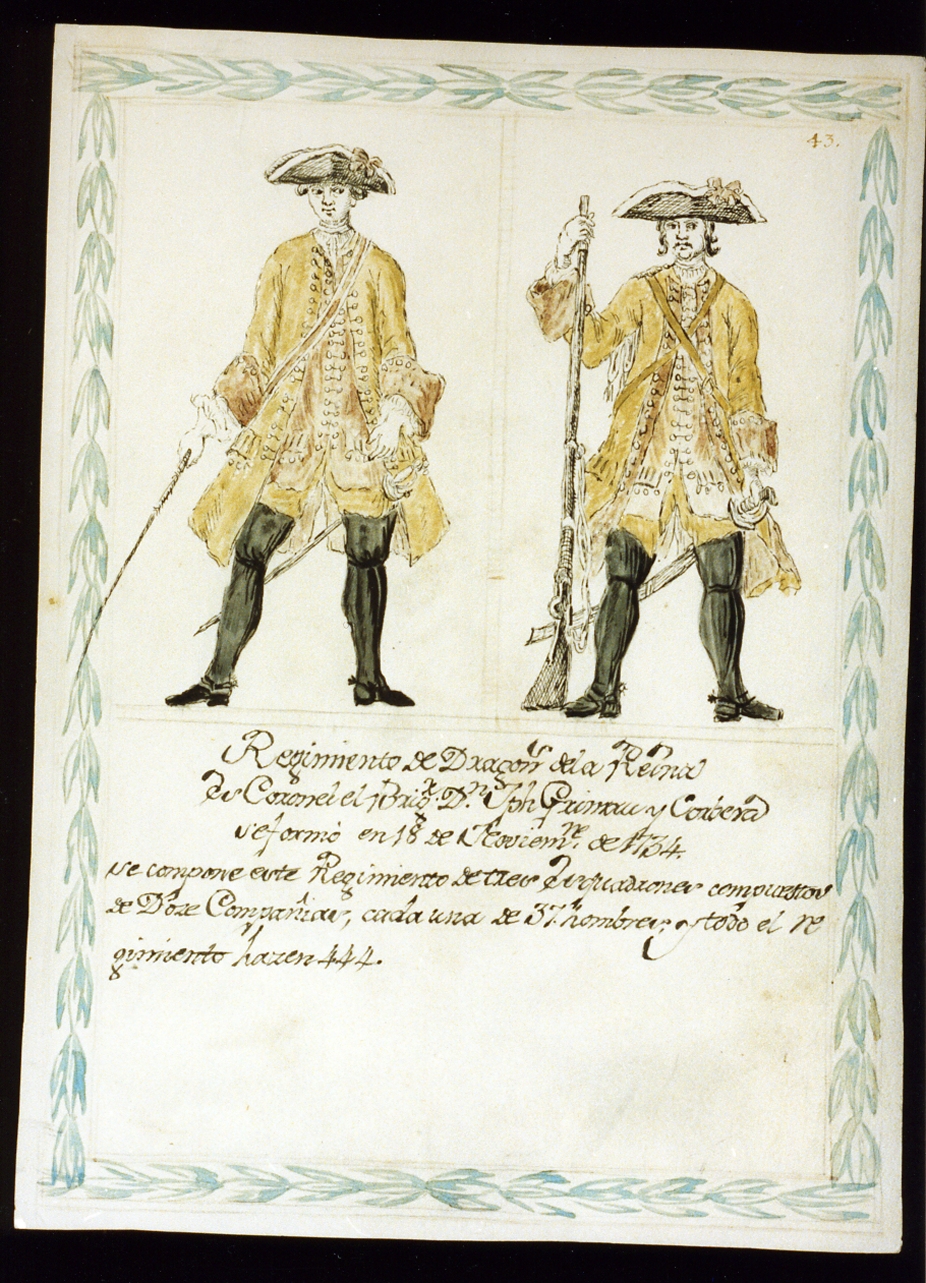 43.
Regimiento de Dragons de la Reina
Es Coronel el Brigr. Dn. Jph Grimau y Corbera
se formó en 18 de Noviemre. de 1734.
se compone este Regimiento de tres Esquadrones compuestos
de Doze Compañias, cada una de 37. hombres; y todo el re
gimiento hazen 444.